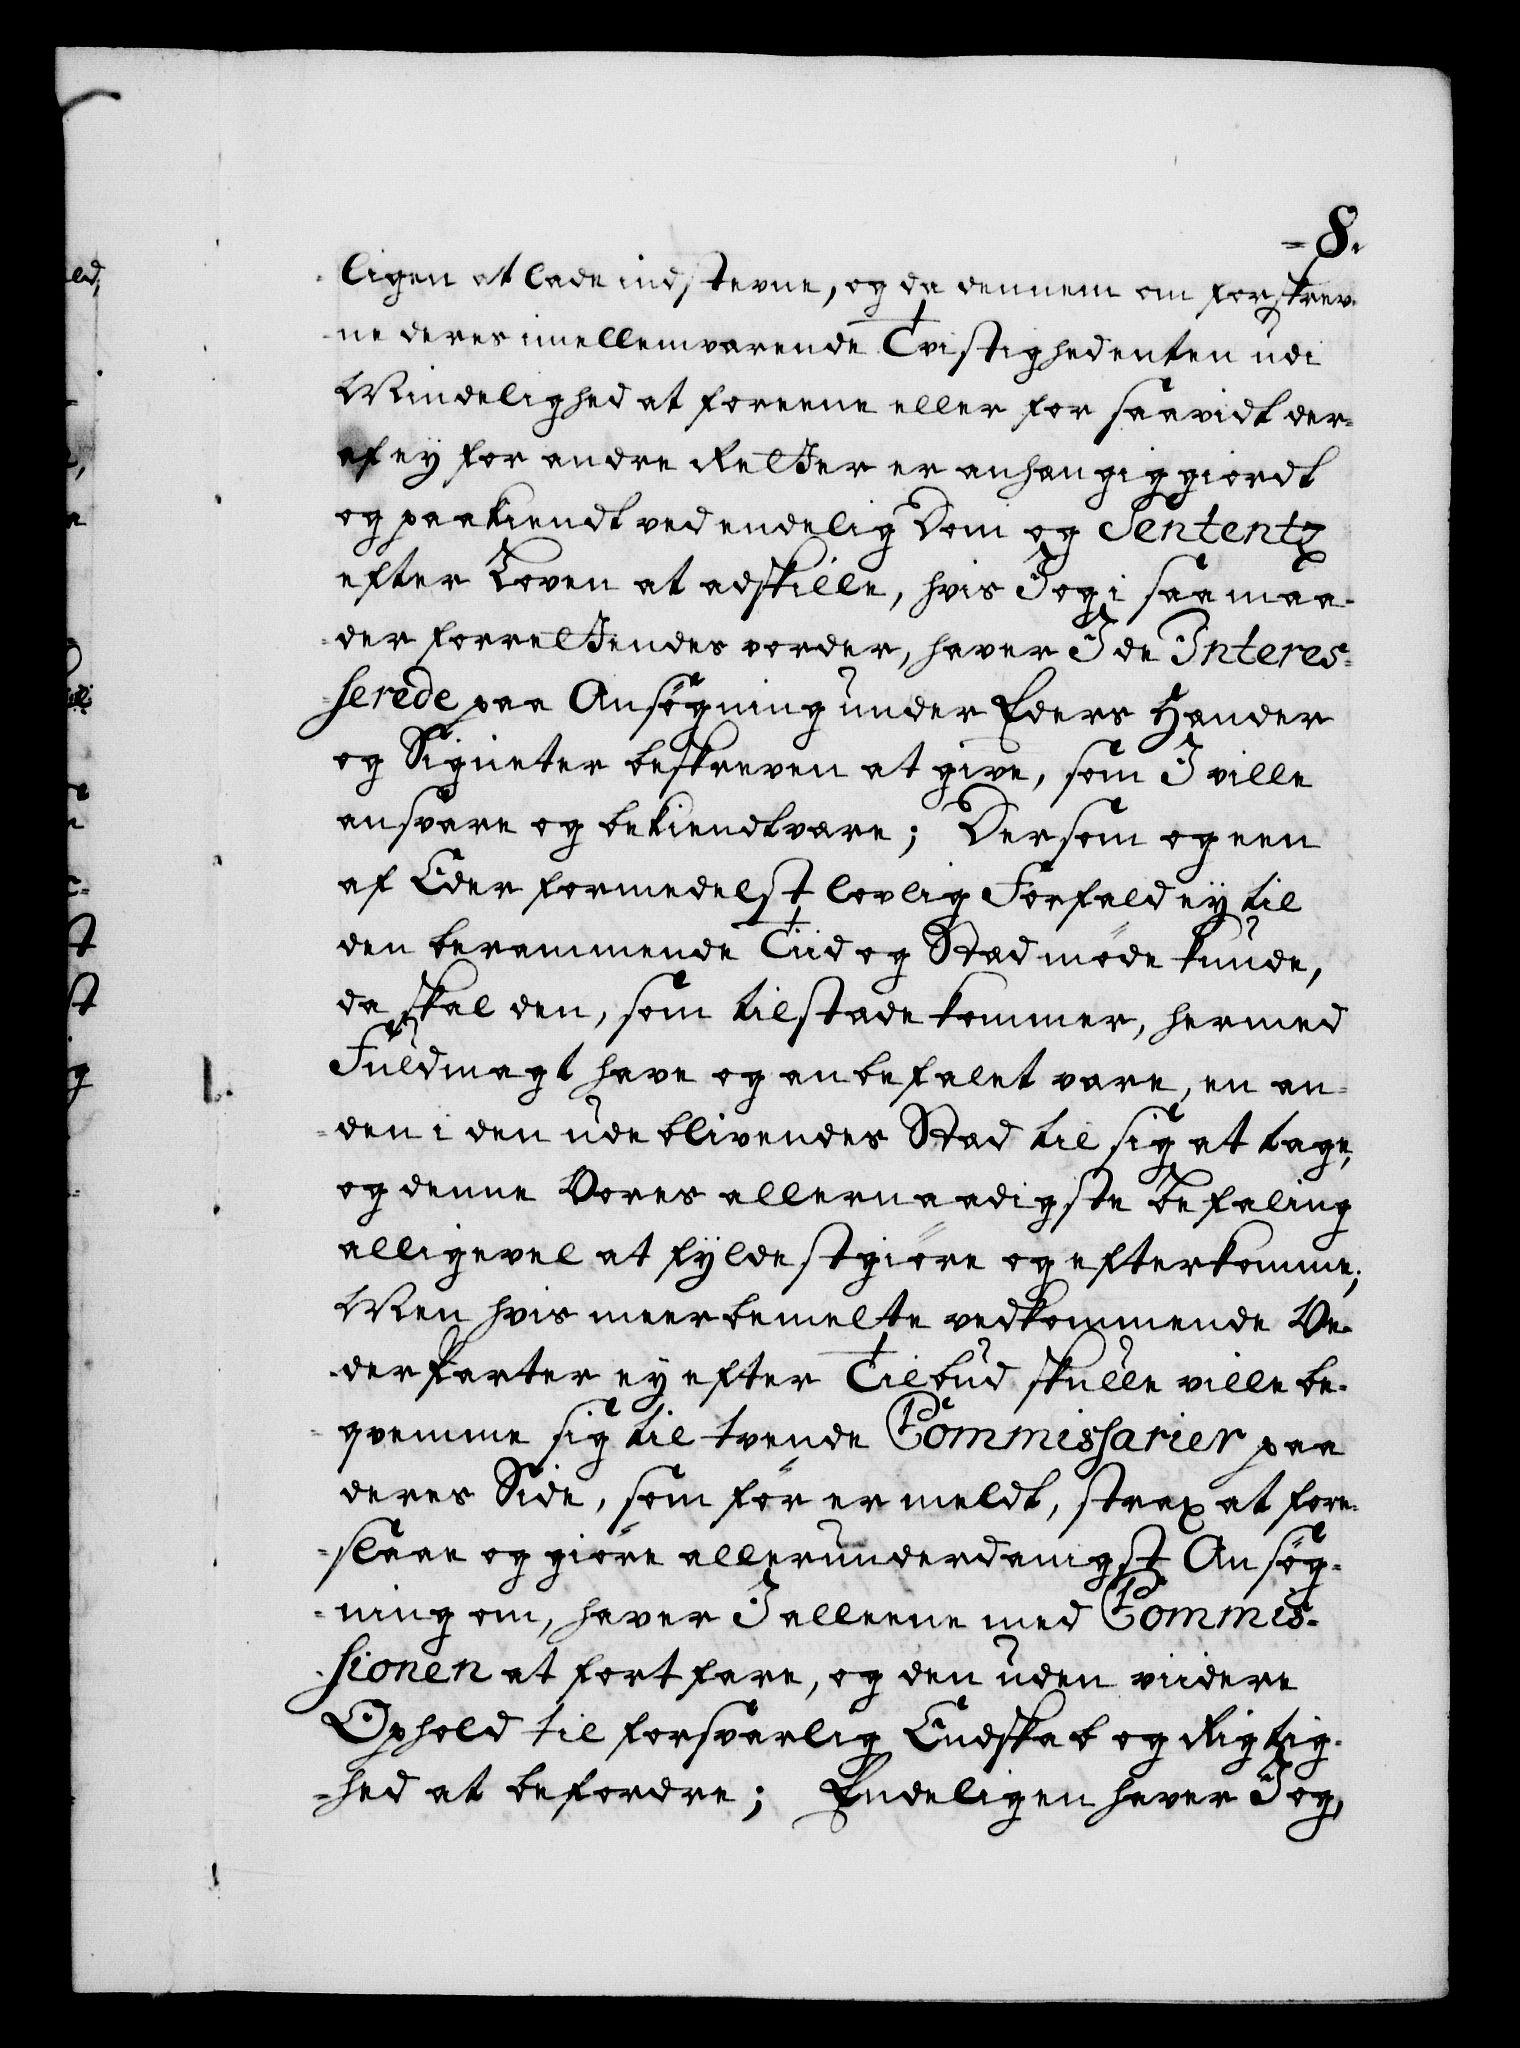 -8.
ligen at lade indstevne, og da dennem om forskrev-
ne deres imellemværende Tvistighed enten udi
Mindelighed at foreene eller for saavidt der-
af ey for andre Retter er anhængig giordt
og paakiendt ved endelig Dom og Sententz
efter Loven at adskille, hvis I og i saa maa-
der forrettendes vorder, haver I de Interes-
serede paa Ansøgning under Eders Hænder
og Signeter beskreven at give, som I ville
ansvare og bekiendt være; Dersom og een
af Eder formedelst lovlig Forfald ey til
den berammende Tiid og Stæd møde kunde,
da skal den, som tilstæde kommer, hermed
Fuldmagt have og anbefalet være, en an-
den i den udeblivendes Stæd til sig at tage,
og denne Vores allernaadigste Befaling
alligevel at fyldestgiøre og efterkomme;
Men hvis meerbemelte vedkommende Ve-
derparter ey efter Tilbud skulle ville be-
qvemme sig til tvende Commissarier paa
deres Side, som før er meldt, strax at fore-
slaae og giøre allerunderdanigst Ansøg-
ning om, haver I alleene med Commis-
sionen at fortfare, og den uden viidere
Ophold til forsvarlig Endskab og Rigtig-
hed at befordre; Endeligen haver I og,